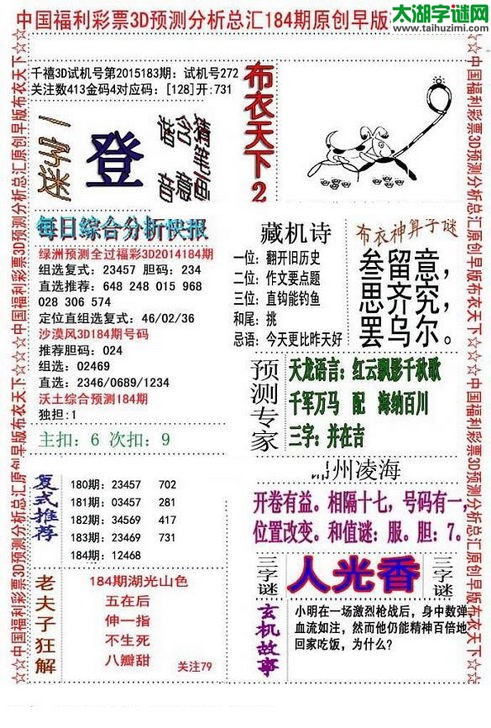 太湖字谜网
www.taihuzimi.com
中国福利彩票3D预测分析总汇184期原创早版
千禧3D试机号第2015183期：试机号272
关注数413金码4对应码：[128]开:731
一字迷
登
猪笔画
含意
谐音
布衣天下2
每日综合分析快报
绿洲预测全过福彩3D2014184期
组选复式：23457 胆码：234
直选推荐：648 248 015 968
028 306 574
定位直组选复式：46/02/36
沙漠风3D184期号码
推荐胆码：024
组选：02469
直选：2346/0689/1234
沃土综合预测184期
独担：1
主扣：6 次扣：9
藏机诗
一位：翻开旧历史
二位：作文要点题
三位：直钩能钓鱼
和尾：挑
忌语：今天更比昨天好
布衣神算子谜
叁留意，
思齐究，
罢乌尔。
预测专家
天龙语言：红云飘影千秋歌
千军万马 配 海纳百川
三字：并在吉
州凌海
开卷有益。相隔十七，号码有一，
位置改变。和值谜：服。胆：7。
复式推荐
180期：23457 702
181期：03457 281
182期：34569 417
183期：23469 731
184期：12468
老夫子狂解
184期湖光山色
五在后
伸一指
不生死
八瓣甜
关注79
三字谜
人光香
三字谜
玄机故事
小明在一场激烈枪战后，身中数弹，
血流如注，然而他仍能精神百倍地
回家吃饭，为什么？
中国福利彩票3D预测分析总汇原创早版布衣天下
中国福利彩票3D预测分析总汇原创早版布衣天下